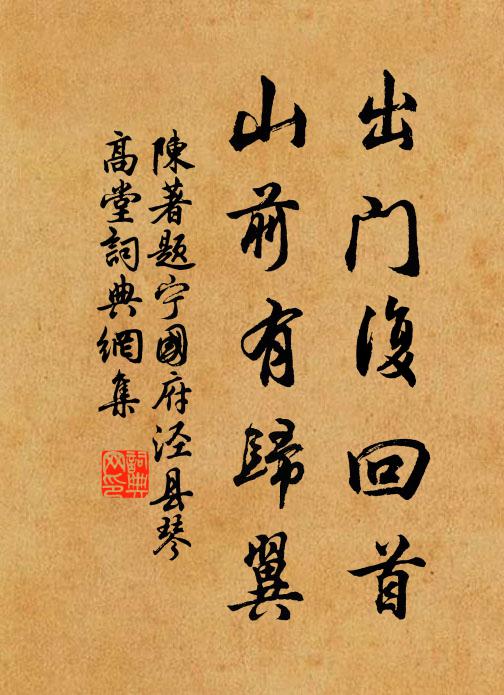 出门復回首
山前有歸翼
陳著題宁國府泾县琴
高堂詞典網集
詞典网印